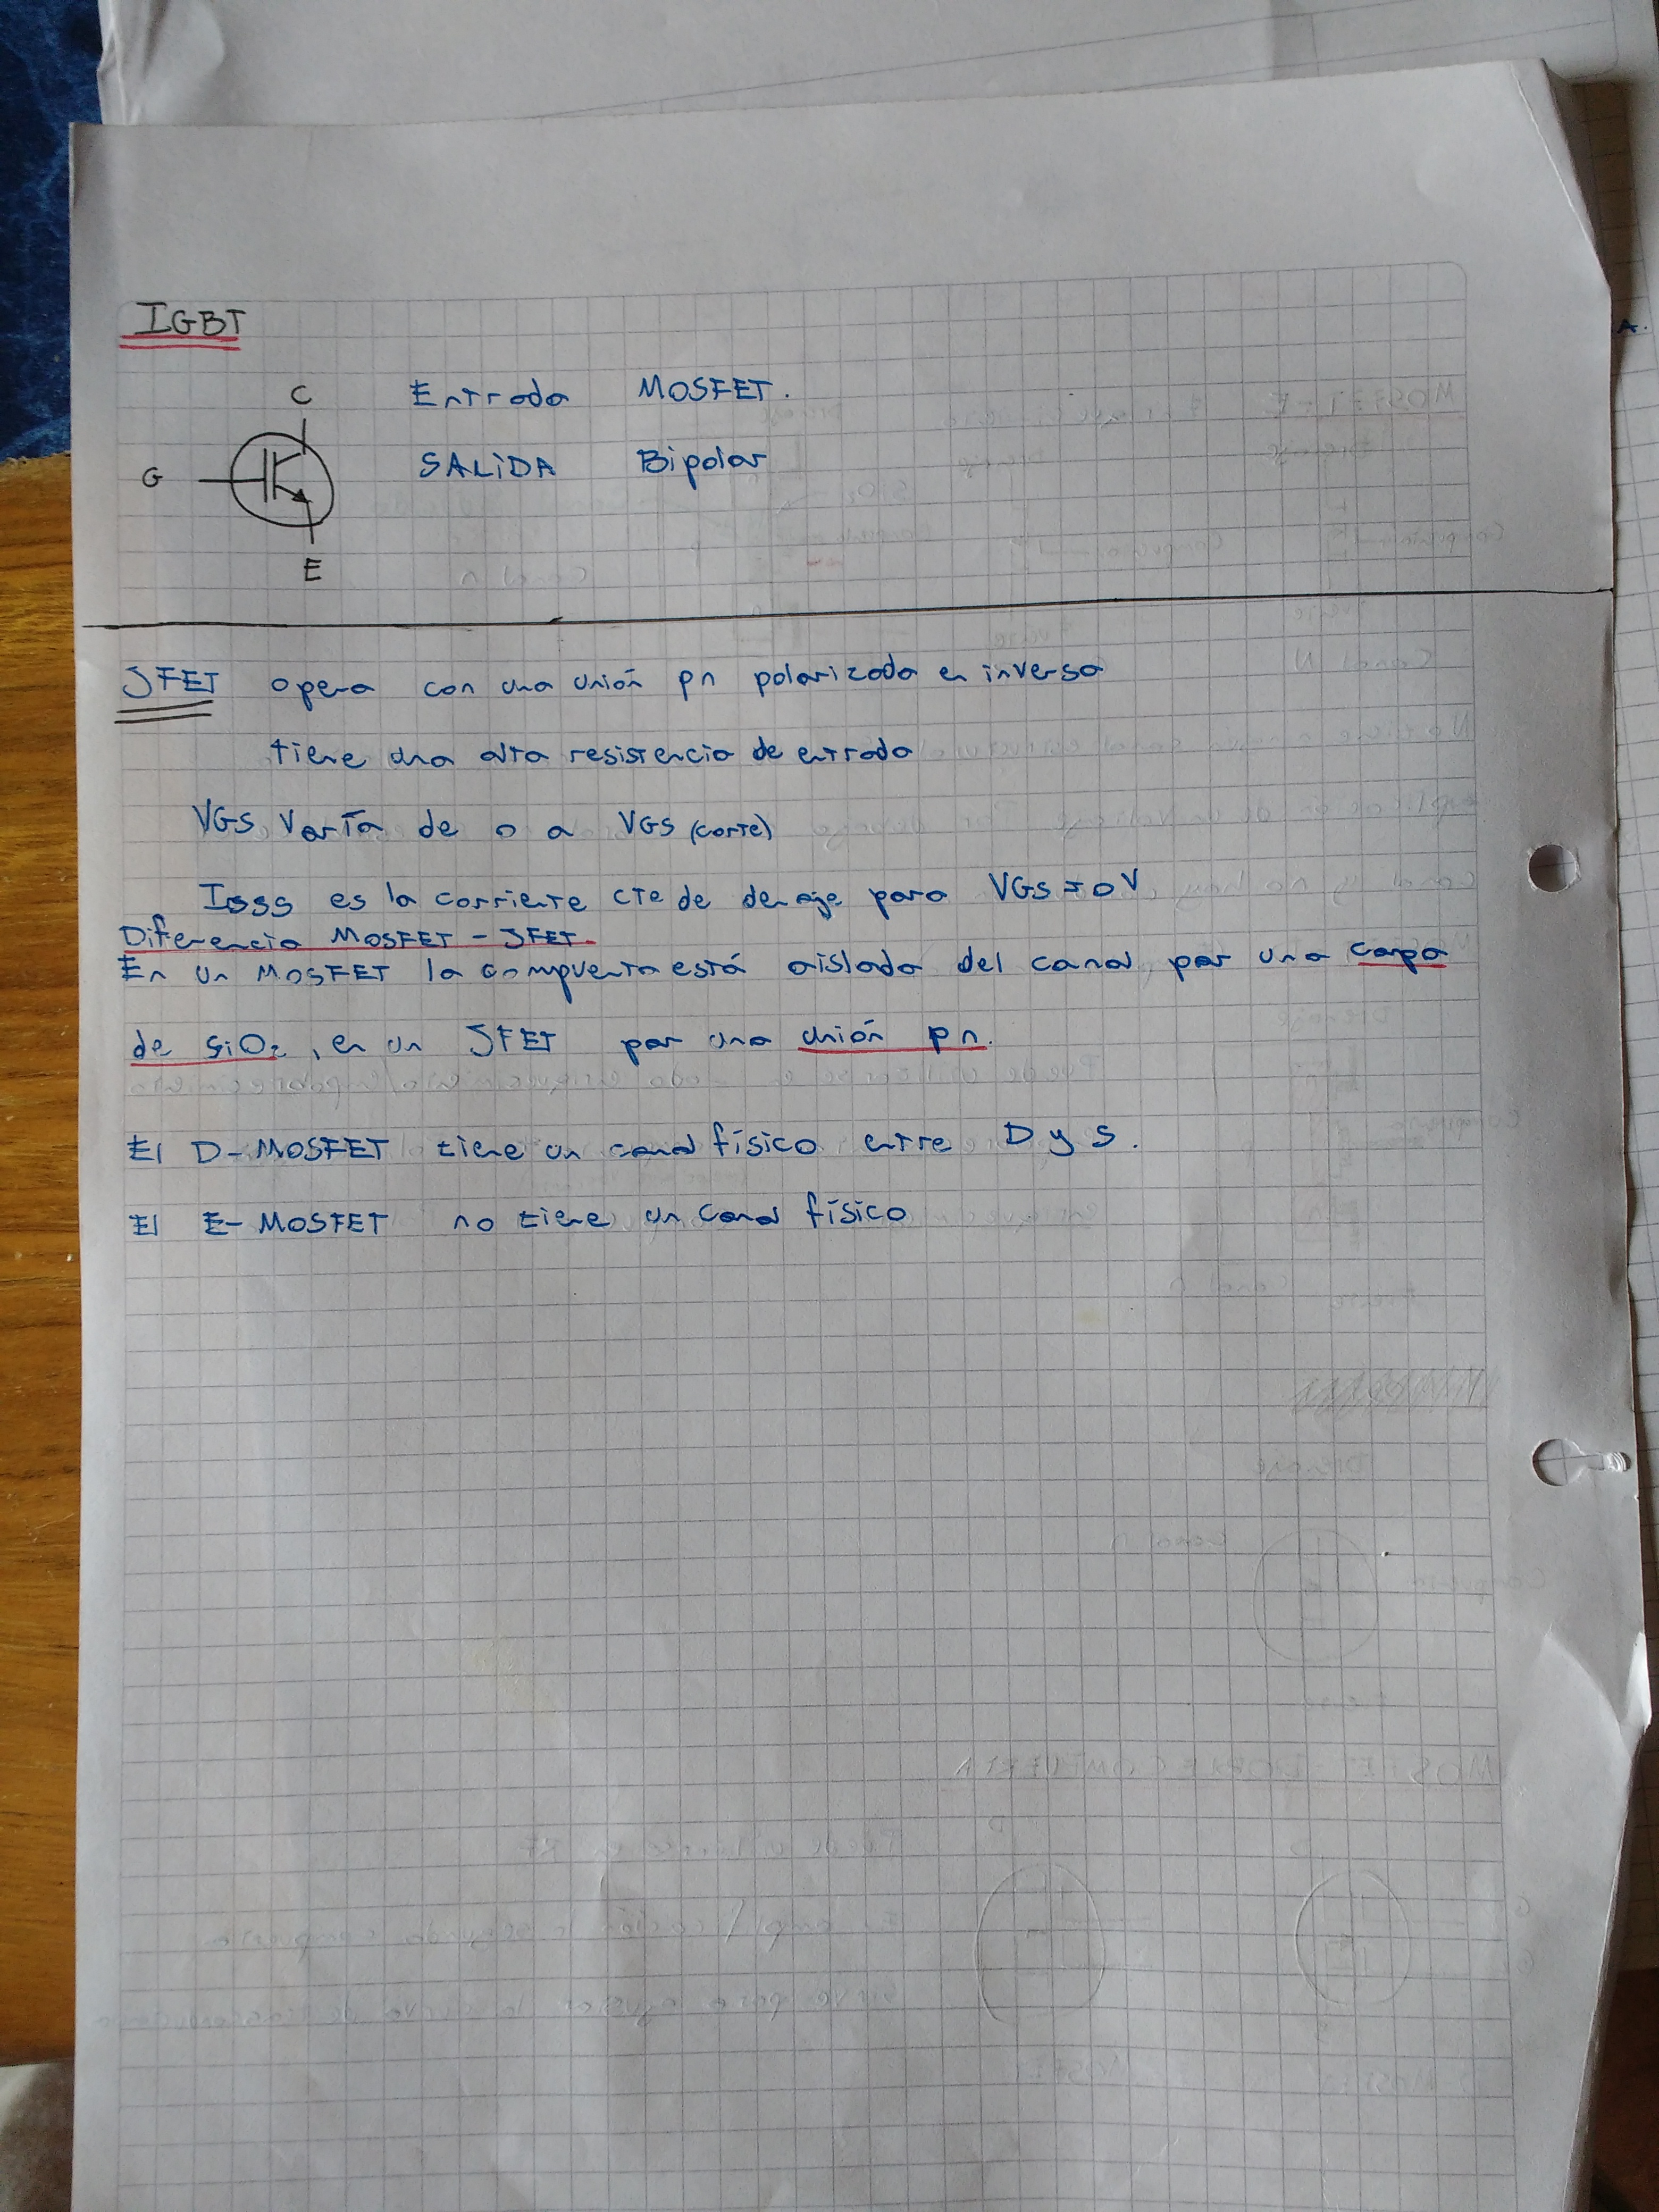 IGBT
C
Entrada MOSFET.
G
SALIDA Bipolar
E
JFET opera con una unión pn polarizada en inversa
tiene una alta resistencia de entrada
VGS varía de 0 a VGS (corte)
IDSS es la corriente cte de denaje para VGS = 0 V
Diferencia MOSFET - JFET.
En un MOSFET la compuerta está aislada del canal por una capa
de SiO2, en un JFET por una unión pn.
El D-MOSFET tiene un canal físico entre D y S.
El E-MOSFET no tiene un canal físico